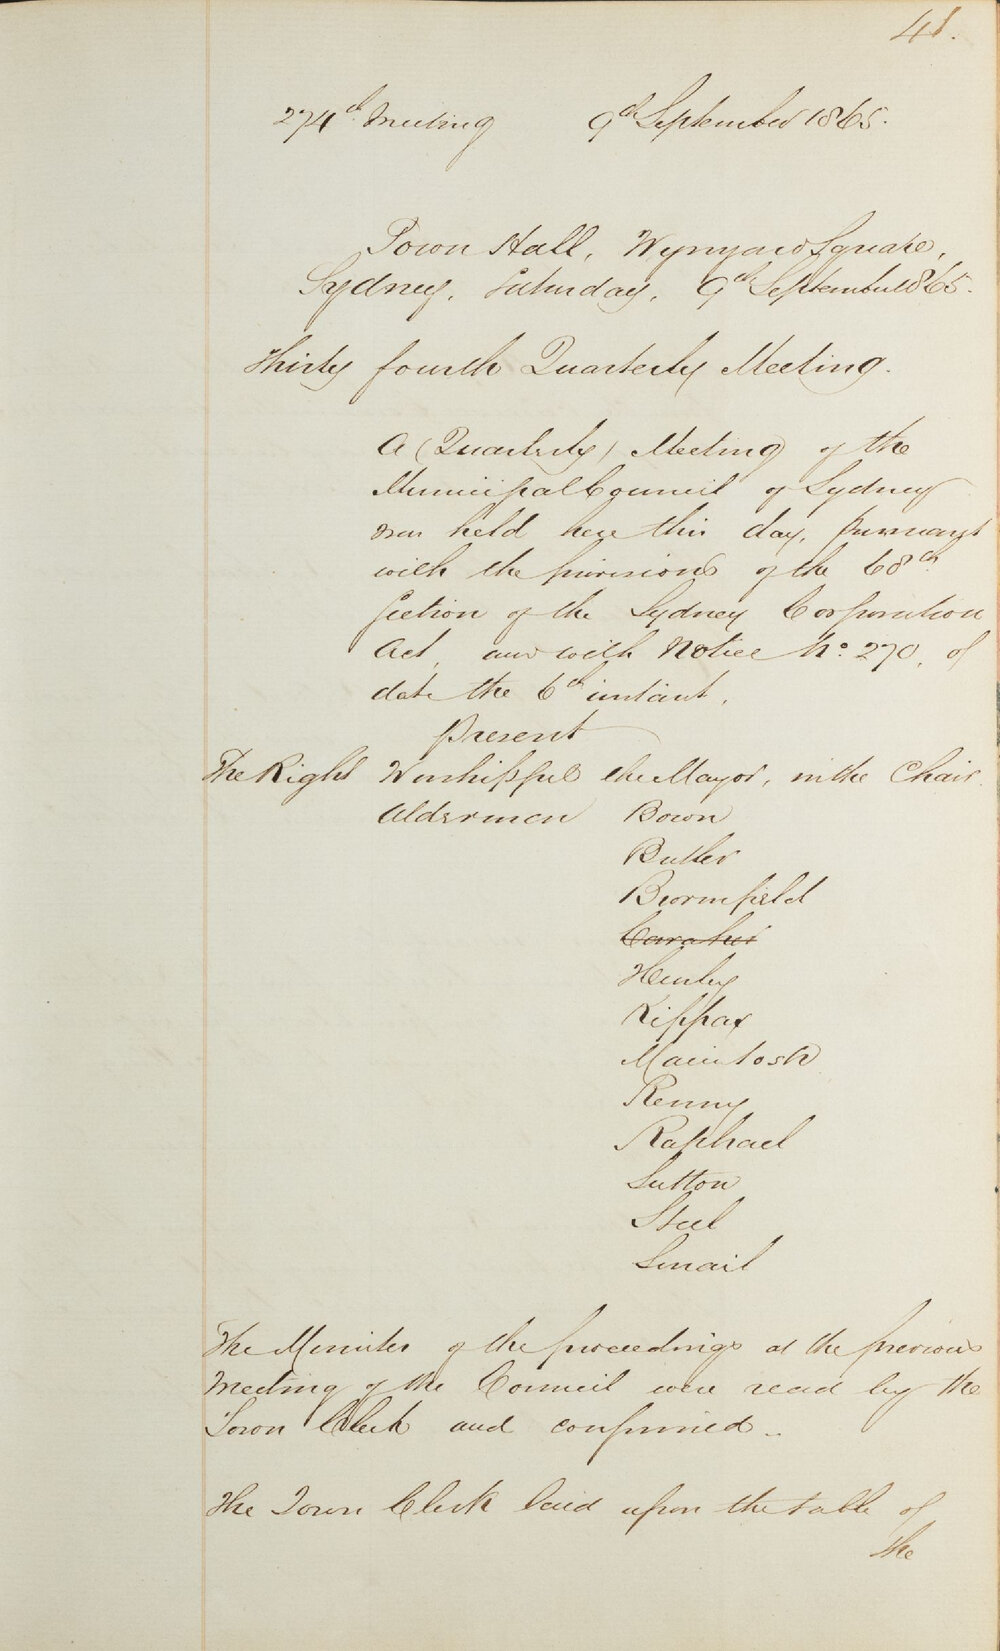 41.
274th Meeting 9th September 1865.
Town Hall, Wynyard Square,
Sydney, Saturday, 9th September 1865.
Thirty fourth Quarterly Meeting.
A (Quarterly) Meeting of the
Municipal Council of Sydney
was held here this day, pursuant
with the provisions of the 68th
Section of the Sydney Corporation
Act, and with Notice No. 270, of
date the 6th instant.
Present
The Right Worshipful the Mayor, in the Chair.
Aldermen Bown
Butler
Bromfield
Caraher
Henley
Kippax
Macintosh
Renny
Raphael
Sutton
Steel
Smail
The Minutes of the proceedings at the previous
Meeting of the Council were read by the
Town Clerk and confirmed..
The Town Clerk laid upon the table of
the